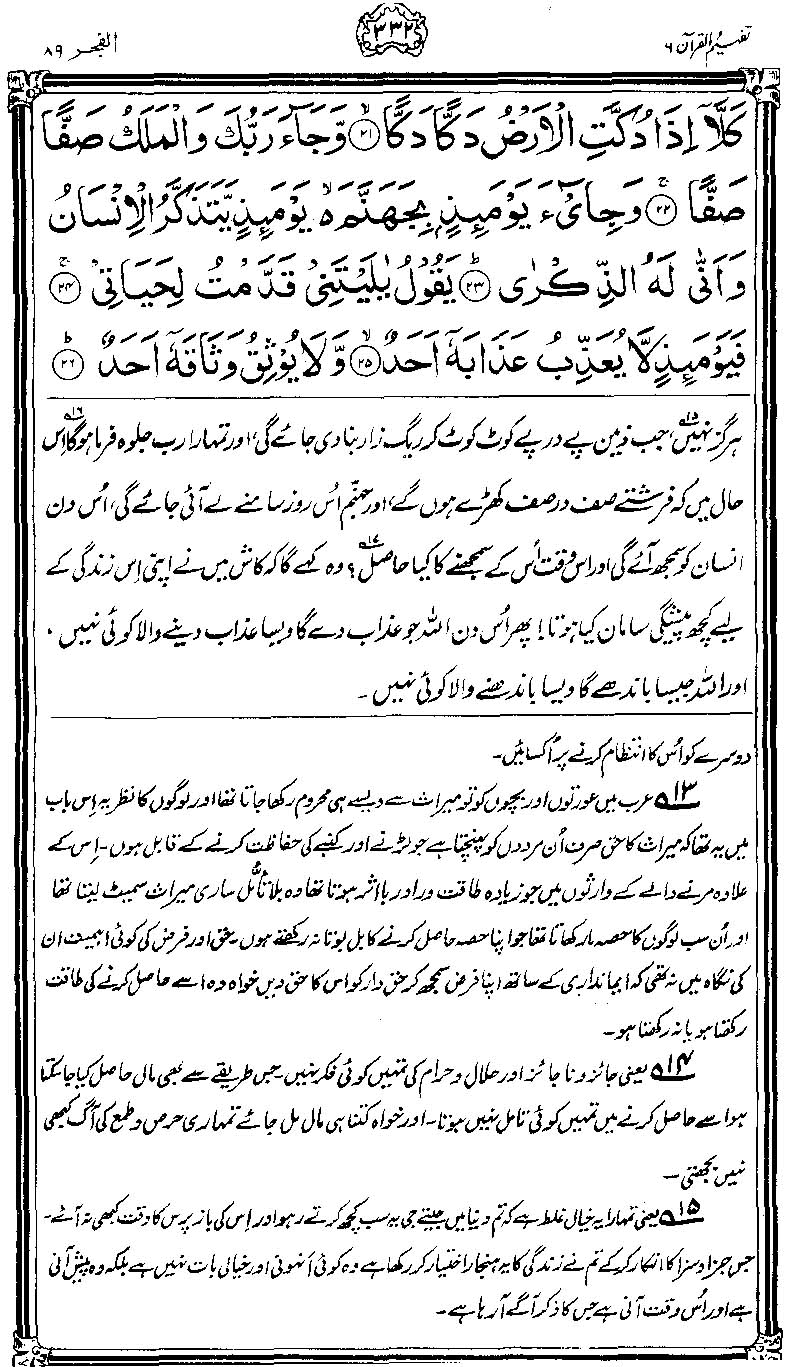 تفہیم القرآن ۶
۳۳۲
الفجر ۸۹
كَلَّاۤ اِذَا دُكَّتِ الْاَرْضُ دَكًّا دَكًّا ۙ۲۱ وَّجَآءَ رَبُّكَ وَالْمَلَكُ صَفًّا
صَفًّا ۚ۲۲ وَجِایْٓءَ يَوْمَىِٕذٍۭ بِجَهَنَّمَ ۙ۬ يَوْمَىِٕذٍ يَّتَذَكَّرُ الْاِنْسَانُ
وَاَنّٰى لَهُ الذِّكْرٰى ؕ۲۳ يَقُوْلُ يٰلَيْتَنِىْ قَدَّمْتُ لِحَيَاتِىْ ۚ۲۴
فَيَوْمَىِٕذٍ لَّا يُعَذِّبُ عَذَابَهٗۤ اَحَدٌ ۙ۲۵ وَّلَا يُوْثِقُ وَثَاقَهٗۤ اَحَدٌ ؕ۲۶
ہرگز نہیں۱۵، جب زمین پے درپے کوٹ کوٹ کر ریگ زار بنا دی جائے گی، اور تمہارا رب جلوہ فرما ہوگا۱۶ اِس
حال میں کہ فرشتے صف در صف کھڑے ہوں گے، اور جہنم اُس روز سامنے لے آئی جائے گی، اُس دن
انسان کو سمجھ آئے گی اور اس وقت اُس کے سمجھنے کا کیا حاصل۱۷؟ وہ کہے گا کہ کاش میں نے اپنی اِس زندگی کے
لیے کچھ پیشگی سامان کیا ہوتا! پھر اُس دن اللہ جو عذاب دے گا ویسا عذاب دینے والا کوئی نہیں،
اور اللہ جیسا باندھے گا ویسا باندھنے والا کوئی نہیں۔
دوسرے کو اُس کا انتظام کرنے پر اُکسائیں۔
۱۳ عرب میں عورتوں اور بچوں کو تو میراث سے ویسے ہی محروم رکھا جاتا تھا اور لوگوں کا نظریہ اِس باب
میں یہ تھا کہ میراث کا حق صرف اُن مردوں کو پہنچتا ہے جو لڑنے اور کنبے کی حفاظت کرنے کے قابل ہوں۔ اِس کے
علاوہ مرنے والے کے وارثوں میں جو زیادہ طاقت ور اور با اثر ہوتا تھا وہ بلا تأمُّل ساری میراث سمیٹ لیتا تھا
اور اُن سب لوگوں کا حصہ مار کھاتا تھا جو اپنا حصہ حاصل کرنے کا بل بوتا نہ رکھتے ہوں۔ حق اور فرض کی کوئی اہمیت ان
کی نگاہ میں نہ تھی کہ ایمانداری کے ساتھ اپنا فرض سمجھ کر حق دار کو اس کا حق دیں خواہ وہ اسے حاصل کرنے کی طاقت
رکھتا ہو یا نہ رکھتا ہو۔
۱۴ یعنی جائز و ناجائز اور حلال و حرام کی تمہیں کوئی فکر نہیں۔ جس طریقے سے بھی مال حاصل کیا جا سکتا
ہو اسے حاصل کرنے میں تمہیں کوئی تامل نہیں ہوتا۔ اور خواہ کتنا ہی مال مل جائے تمہاری حرص و طمع کی آگ کبھی
نہیں بجھتی۔
۱۵ یعنی تمہارا یہ خیال غلط ہے کہ تم دنیا میں جیتے جی یہ سب کچھ کرتے رہو اور اِس کی باز پرس کا وقت کبھی نہ آئے۔
جس جزا و سزا کا انکار کر کے تم نے زندگی کا یہ ہنجار اختیار کر رکھا ہے وہ کوئی اَنہونی اور خیالی بات نہیں ہے بلکہ وہ پیش آنی
ہے اور اُس وقت آنی ہے جس کا ذکر آگے آ رہا ہے۔